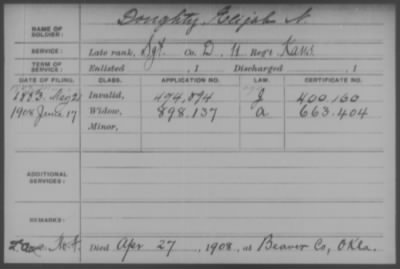 NAME OF SOLDIER: Doughty, Elijah N.
SERVICE: Late rank, Sgt. Co. D, 11 Reg't Kans.
TERM OF SERVICE: Enlisted , 1 Discharged , 1
DATE OF FILING. CLASS. APPLICATION NO. LAW. CERTIFICATE NO.
1883. May 21 Invalid, 494,894 400.160
1908 June 17 Widow, 898.137 a 663.404
Minor,
ADDITIONAL SERVICES:
REMARKS:
Died Apr 27, 1908, at Beaver Co, Okla.